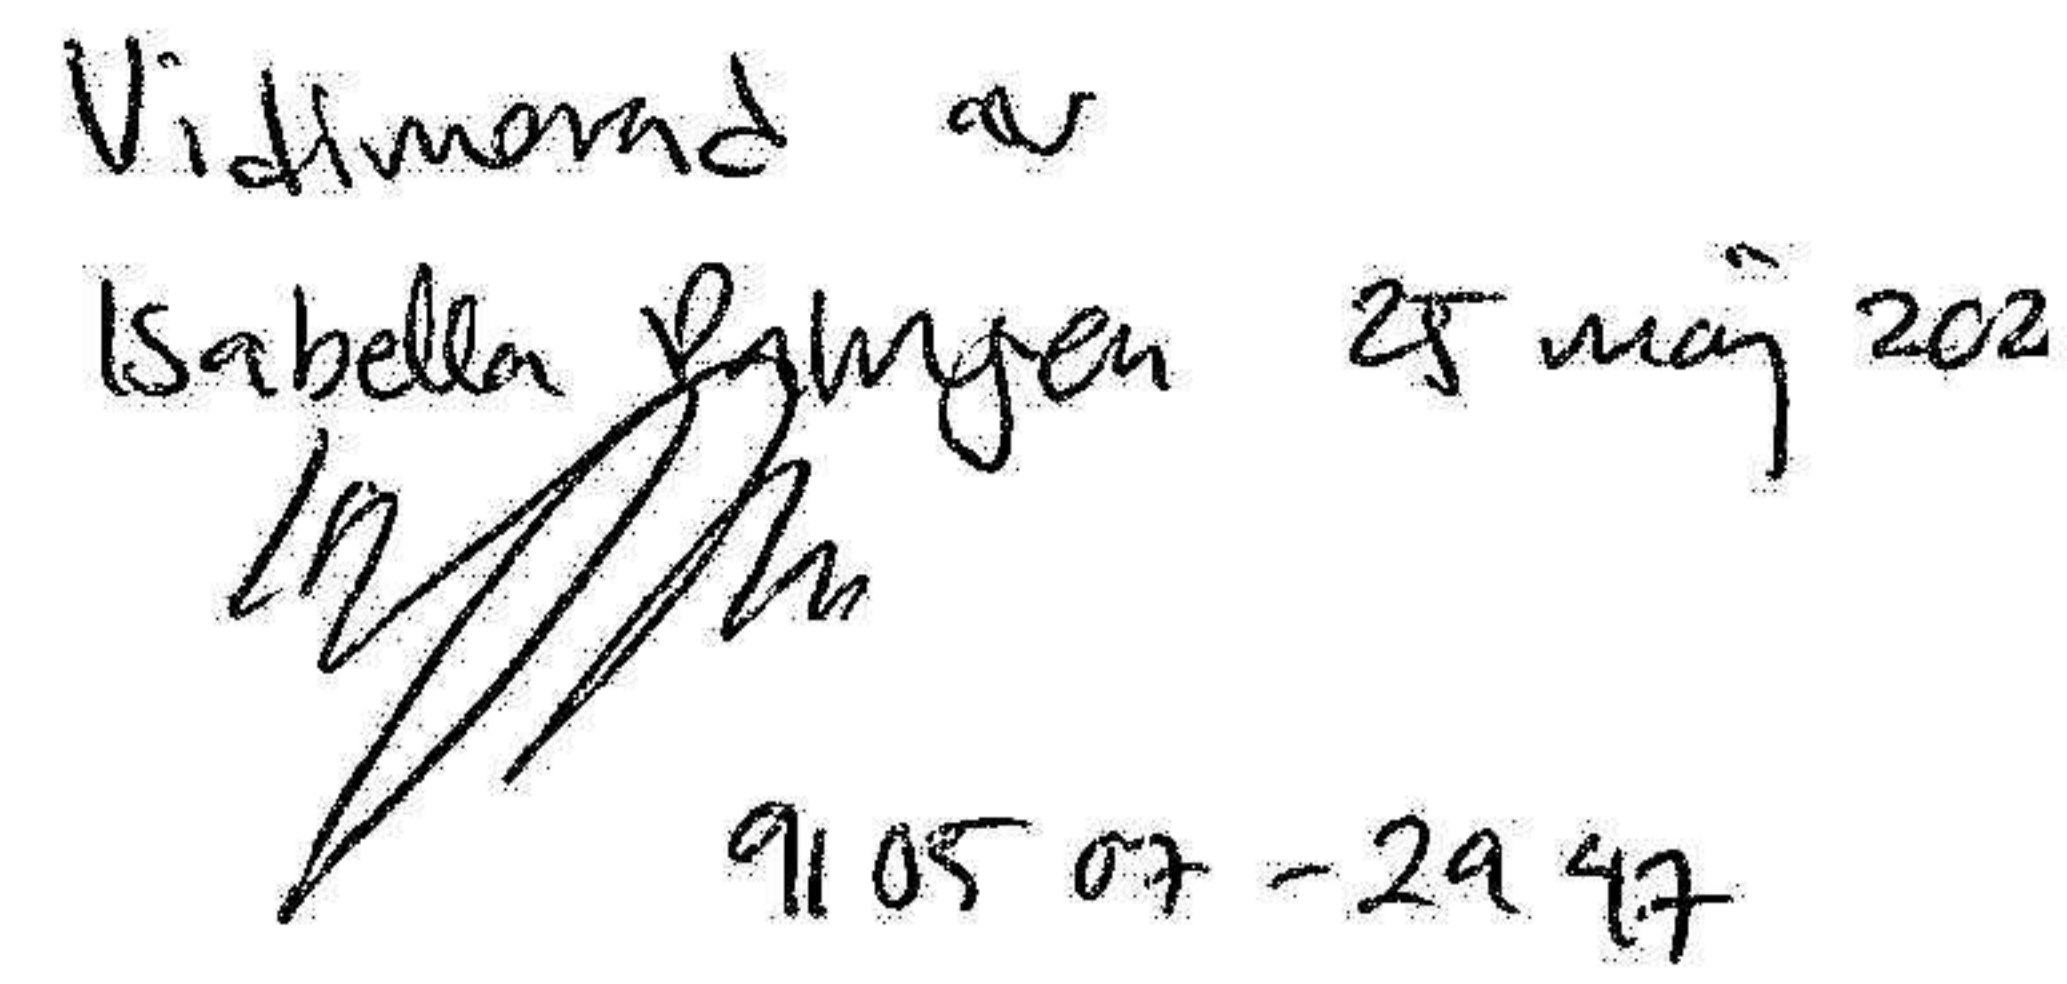 Vidimerad av
Isabella 25 maj 202
910507-2947